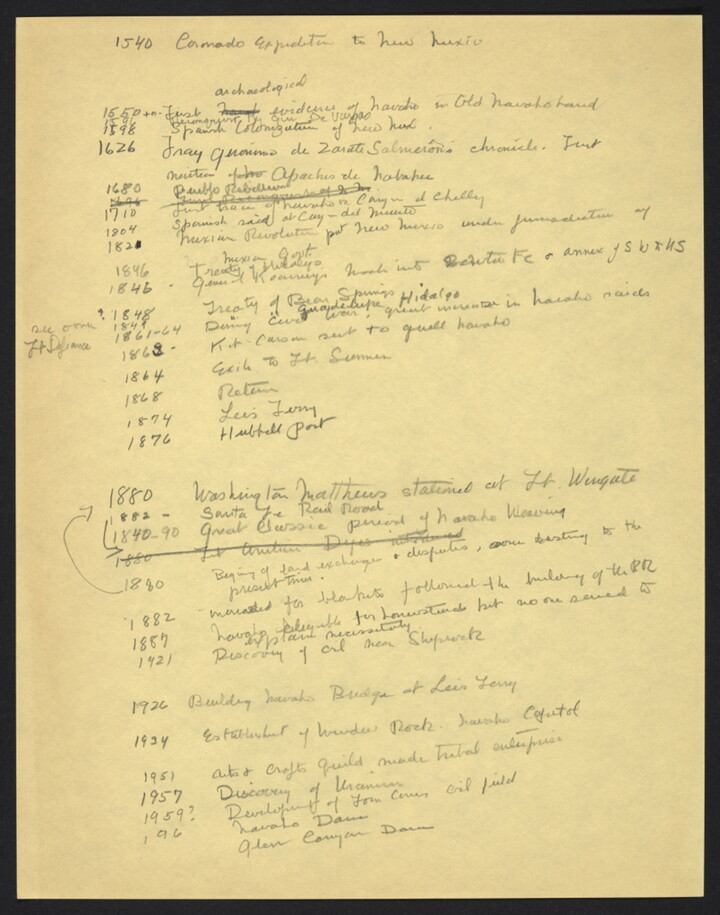 1540 Coronado Expedition to New Mexico
archaeological
1550 +or- First evidence of Navaho in Old Navaholand
1598 Spanish Colonization of New Mex.
1626 Fray Geronimo de Zarate Salmeron's chronicle. First
mention of Apaches de Nabahu
1680 Pueblo Rebellion
1710
1804 Spanish raid at Cany- del Muerto
1821 Mexican Revolution put New Mexico under jurisdiction of
Mexican Govt.
1846 Treaty of
1846 - General Kearneys march into Santa Fe & annex
Treaty of Bear Springs
? 1848 Guadelupe Hidalgo
see over 1849
Ft Defiance
1861-64 During Civil War, great increase in Navaho raids
1863 - Kit Carson sent to quell Navaho
1864 Exile to Ft. Sumner
1868 Return
1874 Lees Ferry
1876 Hubbell Post
1880 Washington Matthews stationed at Ft. Wingate
1882 - Santa Fe Rail Road
1840-90 Great Classic period of Navaho Weaving
1880
1880 Begining of land exchanges & disputes, some lasting to the
present time.
1882 for blankets followed the building of the RR
1887 Navaho eligible for homesteads but no one seemed to
explain necessity
1921 Discovery of oil near Shiprock
1926 Building Navaho Bridge at Lees Ferry
1934 Establishment of Window Rock. Navaho Capitol
1951 Arts & Crafts Guild made tribal enterprise
1957 Discovery of Uranium
1959? Development of Four Corners oil field
Navaho Dam
196 Glen Canyon Dam